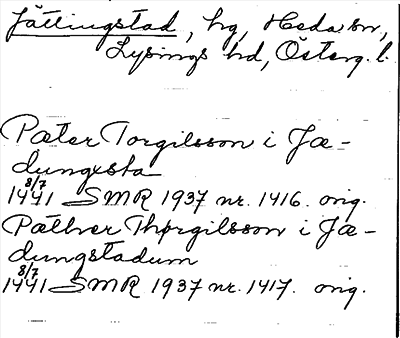 Jättingstad, hg, Heda sn,
Lysings hd, Österg. l.
Pæter Torgilsson i Jæ-
dungxsta
8/7
1441 SMR 1937 nr. 1416. orig.
Pæther Thørgilsson i Jæ-
dungstadum
8/7
1441 SMR 1937 nr. 1417. orig.